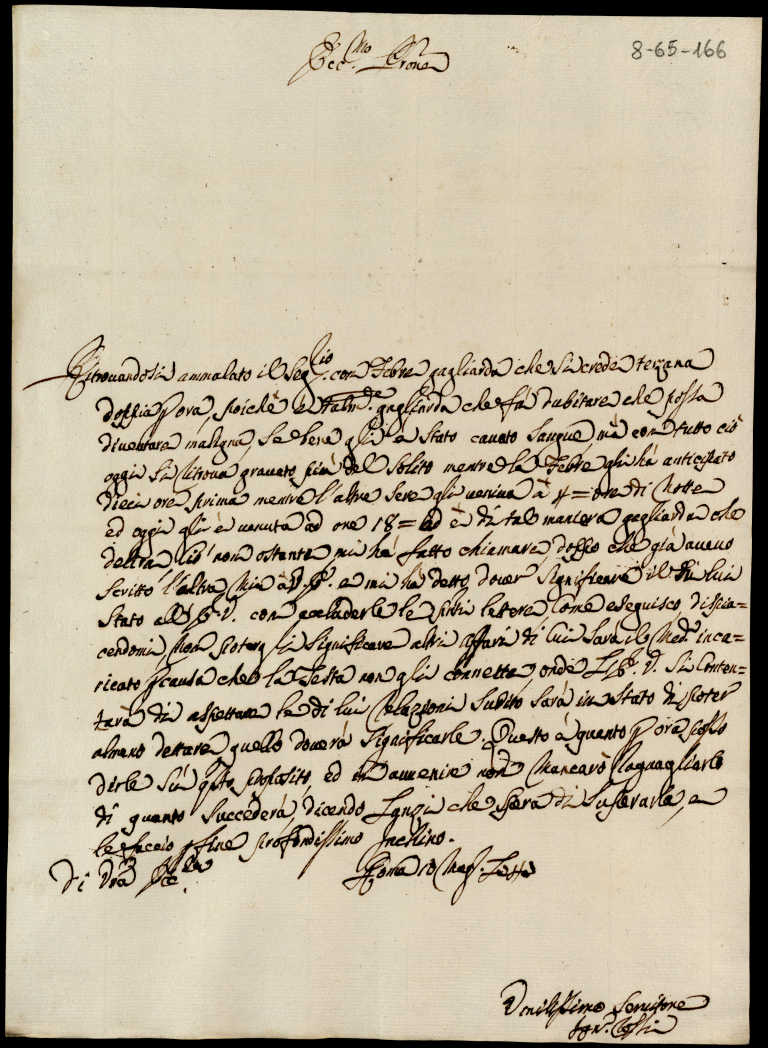 8-65-166
Ecc.mo Sig.r Prone
Ritrouandosi ammalato il Seg.rio con Febre gagliarda che si crede terzana
doppia p ora, poichè è talm.te gagliarda che fà dubitare che possa
diuentare maligna, Se bene gli è Stato cauato Sangue mà con tutto ciò
oggi Si ritroua grauato più del Solito mentre la Febre gli hà anticipato
dieci ore prima mentre l'altre Sere gli ueniua à 4= ore di Notte
ed oggi gli è uenuta ad ore 18= ed è di tal maniera gagliarda che
delira Ciò non ostante mi hà fatto chiamare doppo che già aueuo
Scritto l'altra Mia à V. E. e mi hà detto douer Significare il di lui
Stato all' E. V. con accluderle le lettere Come eseguisco, dispia=
cendomi Non poterg li Significare altri affari di lui Sara il Med.mo inca=
ricato p causa che la Testa non gli connette, onde L'E. V. Si Conten=
tarà di aspettare le di lui Relazioni Subito Sarà in Stato di poter
almeno dettare quello douerà Significarle. Questo è quanto p ora posso
dirle Sù q.sto proposito, ed in auuenire non Mancarò raguagliarlo
di quanto Succederà, dicendo che Spera di Superarla, e
le faccio p fine profondissimo Inchino.
Di V.ra Ecc.za Roma 10 Mag.
Vmilissimo Seruitore